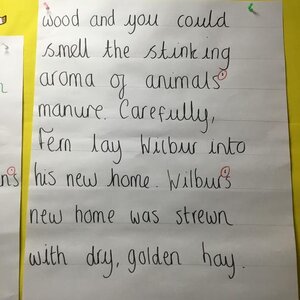 wood and you could
smell the stinking
aroma of animals'
manure. Carefully,
Fern lay Wilbur into
his new home. Wilbur's
new home was strewn
with dry, golden hay.